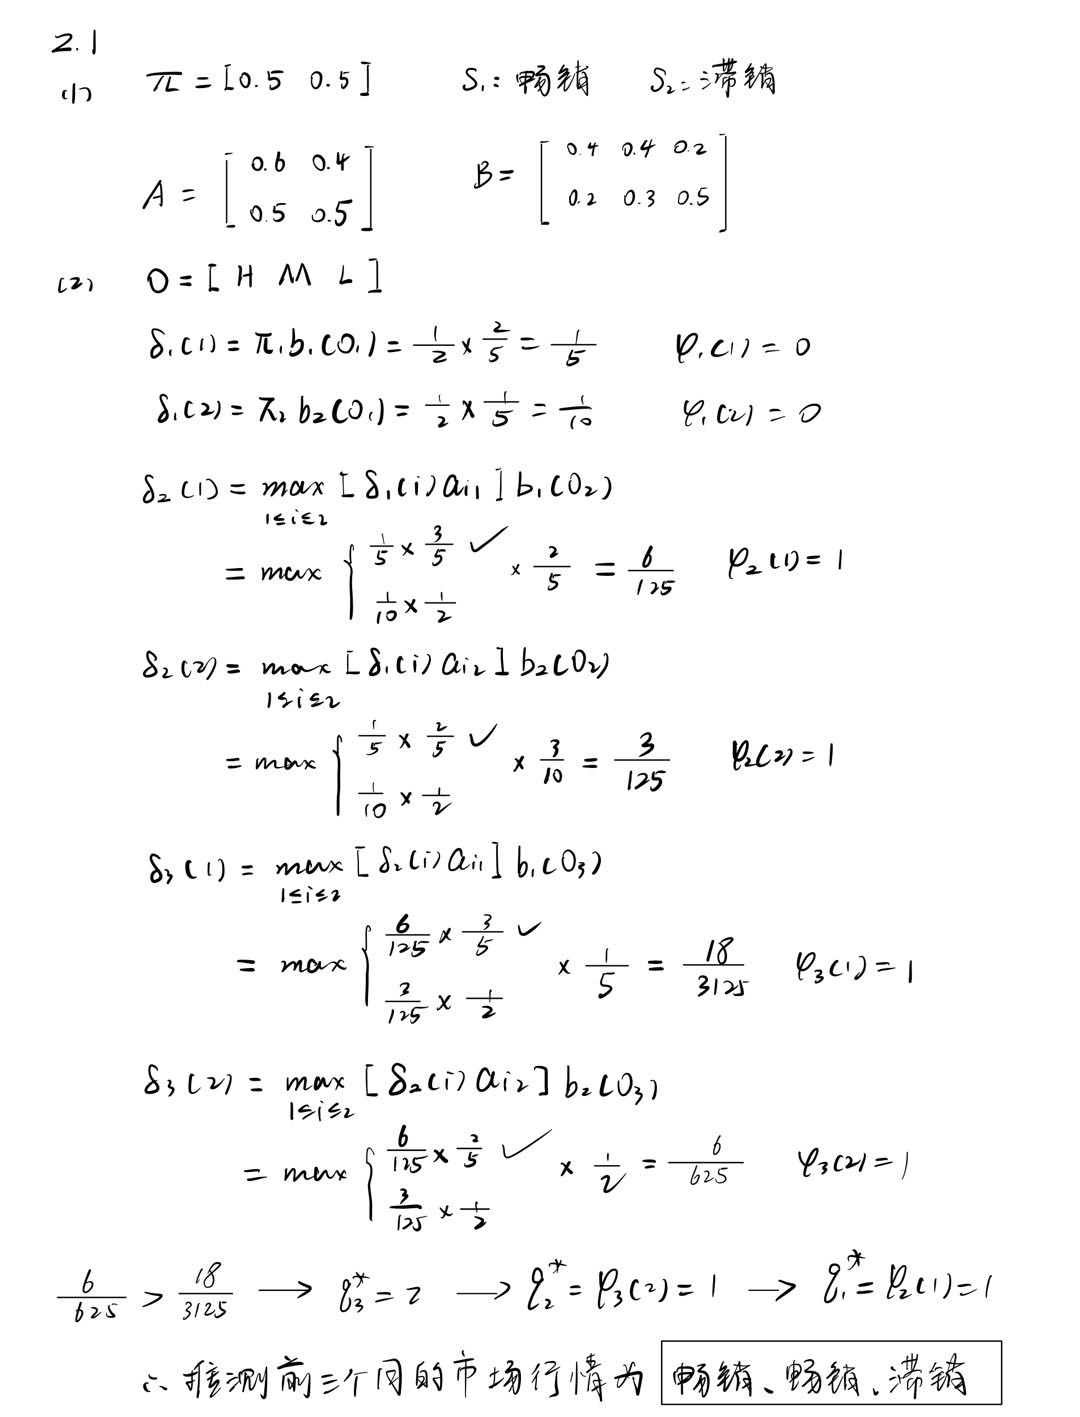 2.1
(1) π = [0.5 0.5] S₁: 畅销 S₂: 滞销
A = [0.6 0.4
0.5 0.5] B = [0.4 0.4 0.2
0.2 0.3 0.5]
(2) O = [H M L]
δ₁(1) = π₁b₁(O₁) = 1/2 × 2/5 = 1/5 φ₁(1) = 0
δ₁(2) = π₂b₂(O₁) = 1/2 × 1/5 = 1/10 φ₁(2) = 0
δ₂(1) = max [δ₁(i)aᵢ₁] b₁(O₂)
1≤i≤2
= max { 1/5 × 3/5 ✓
1/10 × 1/2 × 2/5 = 6/125 φ₂(1) = 1
δ₂(2) = max [δ₁(i)aᵢ₂] b₂(O₂)
1≤i≤2
= max { 1/5 × 2/5 ✓
1/10 × 1/2 × 3/10 = 3/125 φ₂(2) = 1
δ₃(1) = max [δ₂(i)aᵢ₁] b₁(O₃)
1≤i≤2
= max { 6/125 × 3/5 ✓
3/125 × 1/2 × 1/5 = 18/3125 φ₃(1) = 1
δ₃(2) = max [δ₂(i)aᵢ₂] b₂(O₃)
1≤i≤2
= max { 6/125 × 2/5 ✓
3/125 × 1/2 × 1/2 = 6/625 φ₃(2) = 1
6/625 > 18/3125 → q₃* = 2 → q₂* = φ₃(2) = 1 → q₁* = φ₂(1) = 1
∴ 推测前三个月的市场行情为 畅销、畅销、滞销